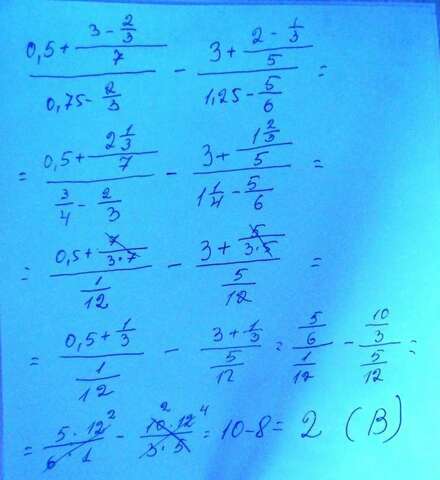 (0,5 + (3 - 2/3)/7)/(0,75 - 2/3) - (3 + (2 - 1/3)/5)/(1,25 - 5/6) =
= (0,5 + (2 1/3)/7)/(3/4 - 2/3) - (3 + (1 2/3)/5)/(1 1/4 - 5/6) =
= (0,5 + 7/(3·7))/(1/12) - (3 + 5/(3·5))/(5/12) =
= (0,5 + 1/3)/(1/12) - (3 + 1/3)/(5/12) = (5/6)/(1/12) - (10/3)/(5/12) =
= (5·12²)/(6·1) - (10²·12⁴)/(3·5) = 10 - 8 = 2 (B)